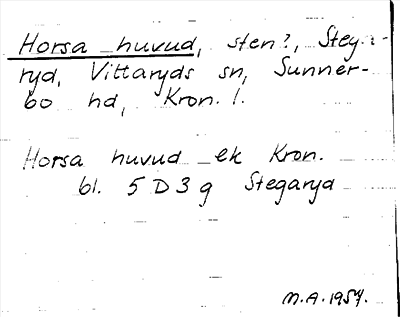 Horsa huvud, sten?, Stega-
ryd, Vittaryds sn, Sunner-
bo hd, Kron. l.
Horsa huvud ek Kron.
bl. 5 D 3 g Stegaryd
M.A. 1957.